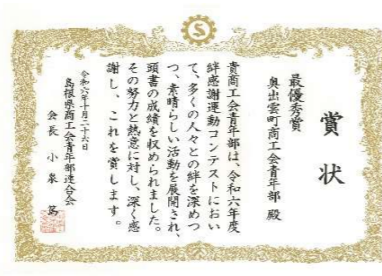 賞状
最優秀賞
奥出雲町商工会青年部 殿
貴商工会青年部は、令和六年度
絆感謝運動コンテストにおい
て、多くの人々との絆を深めつ
つ、素晴らしい活動を展開され、
頭書の成績を収められました。
その努力と熱意に対し、深く感
謝し、これを賞します。
令和六年十月二十六日
島根県商工会青年部連合会
会長 小泉 篤